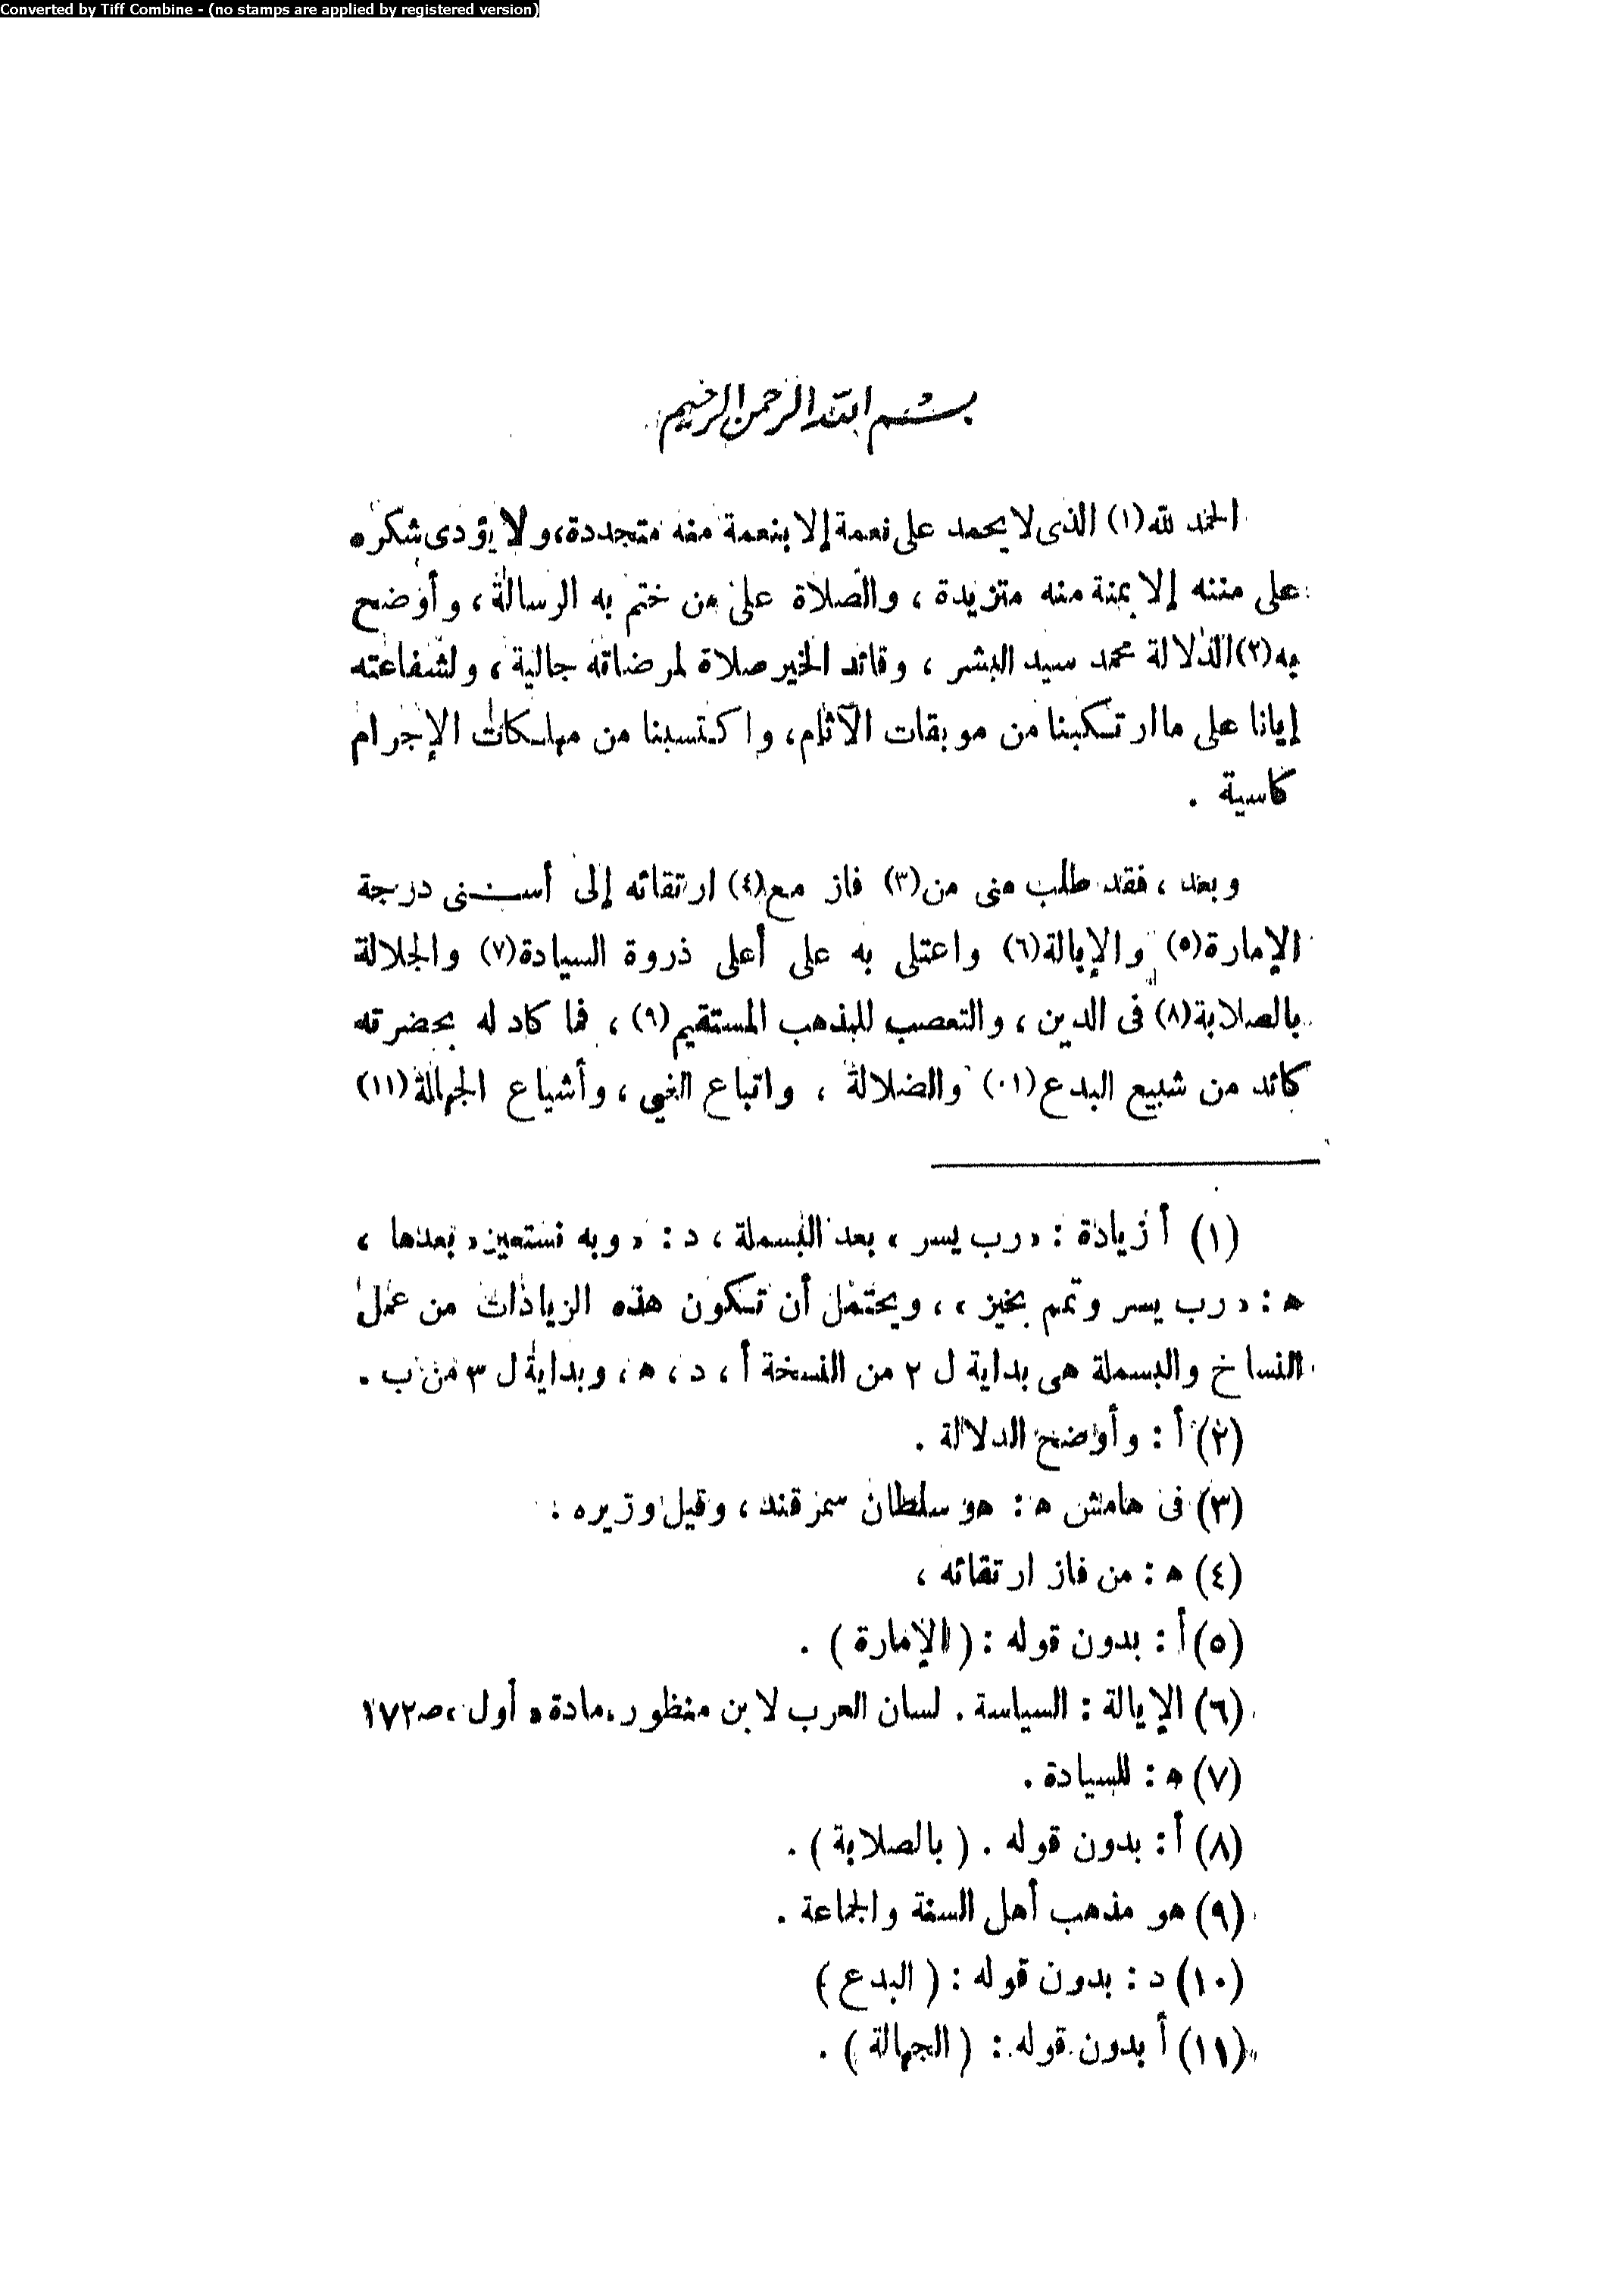 Converted by Tiff Combine - (no stamps are applied by registered version)
بسم الله الرحمن الرحيم
الحمد لله(١) الذى لا يحمد على نعمة إلا بنعمة منه متجددة، ولا يؤدى شكره
على مننه إلا بمنة منه متزيدة ، والصلاة على من ختم به الرسالة ، وأوضح
به(٢) الدلالة محمد سيد البشر ، وقائد الخير صلاة لمرضاته جالية ، ولشفاعته
إيانا على ما ارتكبنا من موبقات الآثام، واكتسبنا من مهلكات الإجرام
كاسية .
وبعد ، فقد طلب منى من(٣) فاز مع(٤) ارتقائه إلى أسنى درجة
الإمارة(٥) والإيالة(٦) واعتلى به على أعلى ذروة السيادة(٧) والجلالة
بالصلابة(٨) فى الدين ، والتعصب للمذهب المستقيم(٩) ، فما كاد له بحضرته
كائد من شييع البدع(٠١) والضلالة ، واتباع الغى ، وأشياع الجهالة(١١)
(١) أ زيادة : «رب يسر» بعد البسملة ، د : «وبه نستعين» بعدها ،
ه : «رب يسر وتمم بخير» ، ويحتمل أن تكون هذه الزيادات من عمل
النساخ والبسملة هى بداية ل ٢ من النسخة أ ، د ، ه ، وبداية ل ٣ من ب .
(٢) أ : وأوضح الدلالة .
(٣) فى هامش ه : هو سلطان سمرقند ، وقيل وزيره :
(٤) ه : من فاز ارتقائه ،
(٥) أ : بدون قوله : ( الإمارة ) .
(٦) الإيالة : السياسة . لسان العرب لابن منظور. مادة « أول ، صـ١٧٢
(٧) ه : للسيادة .
(٨) أ : بدون قوله . ( بالصلابة ) .
(٩) هو مذهب أهل السنة والجماعة .
(١٠) د : بدون قوله : ( البدع )
(١١) أ بدون قوله : ( الجهالة ) .